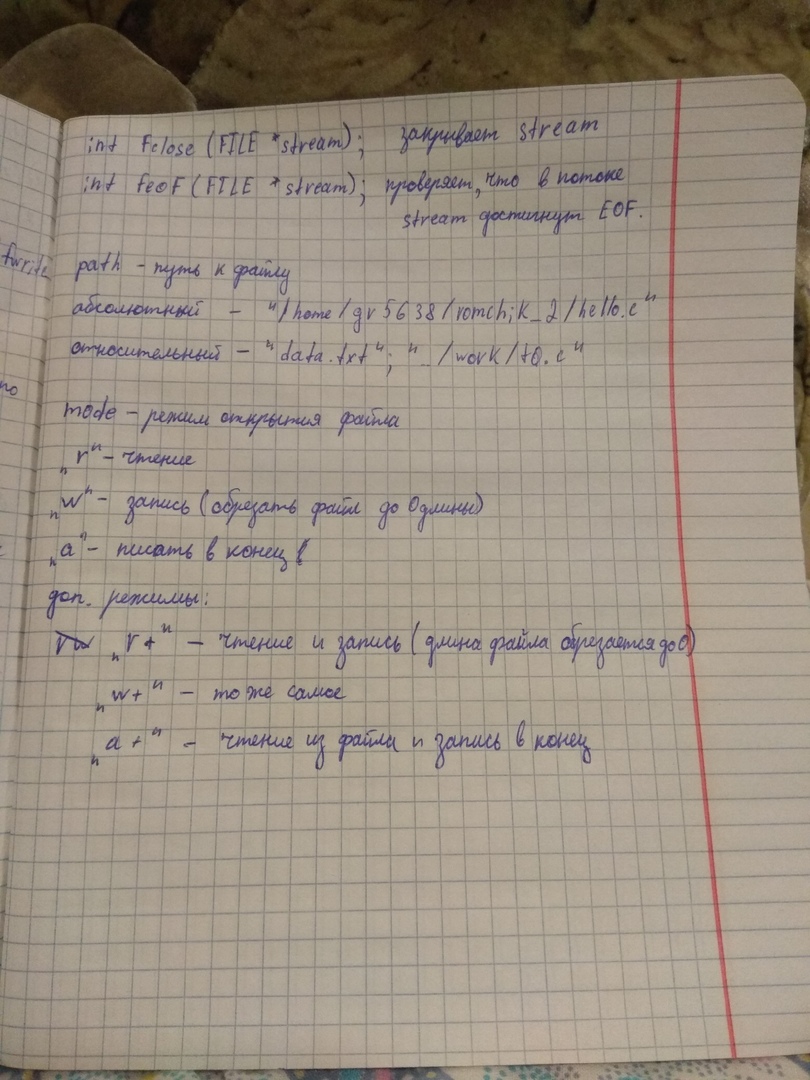 int Fclose (FILE *stream); закрывает stream
int feoF (FILE *stream); проверяет, что в потоке
stream достигнут EOF.
fwrite
path - путь к файлу
абсолютный - "/home/gr5638/romchik_2/hello.c"
относительный - "data.txt"; "../work/t0.c"
mode - режим открытия файла
"r" - чтение
"w" - запись (обрезать файл до 0 длины)
"a" - писать в конец
доп. режимы:
"r+" - чтение и запись (длина файла обрезается до 0)
"w+" - то же самое
"a+" - чтение из файла и запись в конец